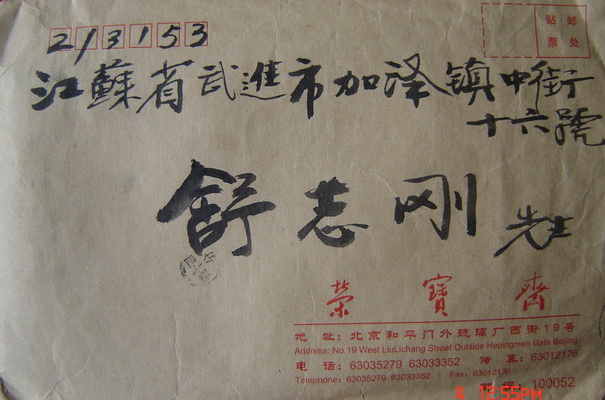 213153
贴 邮
票 处
江蘇省武進市加泽镇中街
十六號
舒志刚 先生
荣寶齋
地 址: 北京和平门外琉璃厂西街19号
Address: No 19 West LiuLichang Street Outside Hepingmen Gate Beijing
电 话: 63035279 63033352 传 真: 63012176
Telephone: 63035279 63033352 Fax: 630121
邮 编: 100052
12:55PM